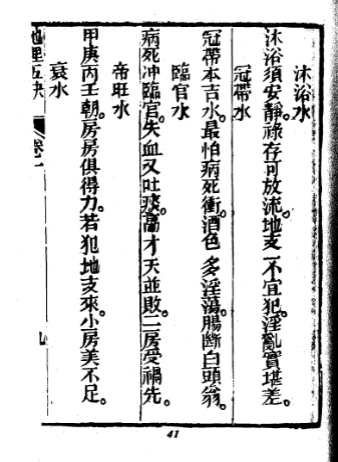 沐浴水
沐浴須安靜。祿存可放流。地支一不宜犯。淫亂實堪差。
冠帶水
冠帶本吉水。最怕病死衝。酒色多淫蕩。腸斷白頭翁。
臨官水
病死冲臨官。失血又吐痰。高才夭並敗。二房受禍先。
帝旺水
甲庚丙壬朝。房房俱得力。若犯地支來。小房美不足。
衰水
地理五訣
卷一
九
41